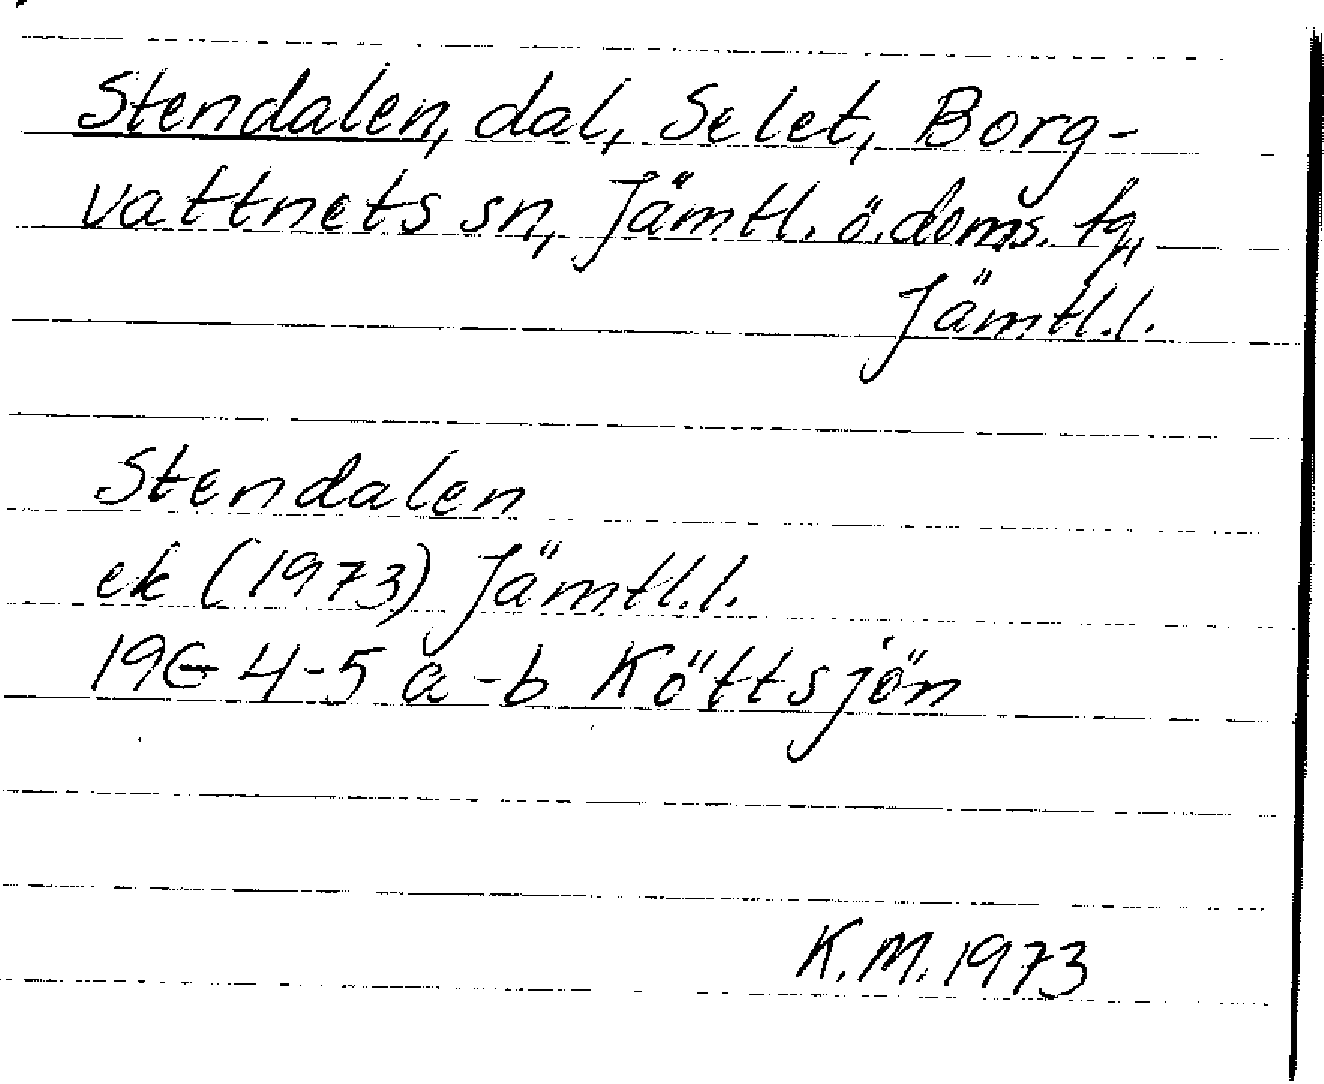 Stendalen, dal, Selet, Borg-
vattnets sn, Jämtl. ö. doms. tg,
Jämtl.l.
Stendalen
ek (1973) Jämtl.l.
19E 4-5 a-b Köttsjön
K.M. 1973